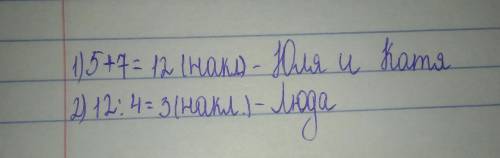 1) 5+7=12 (накл) - Юля и Катя
2) 12:4=3 (накл.) - Люда